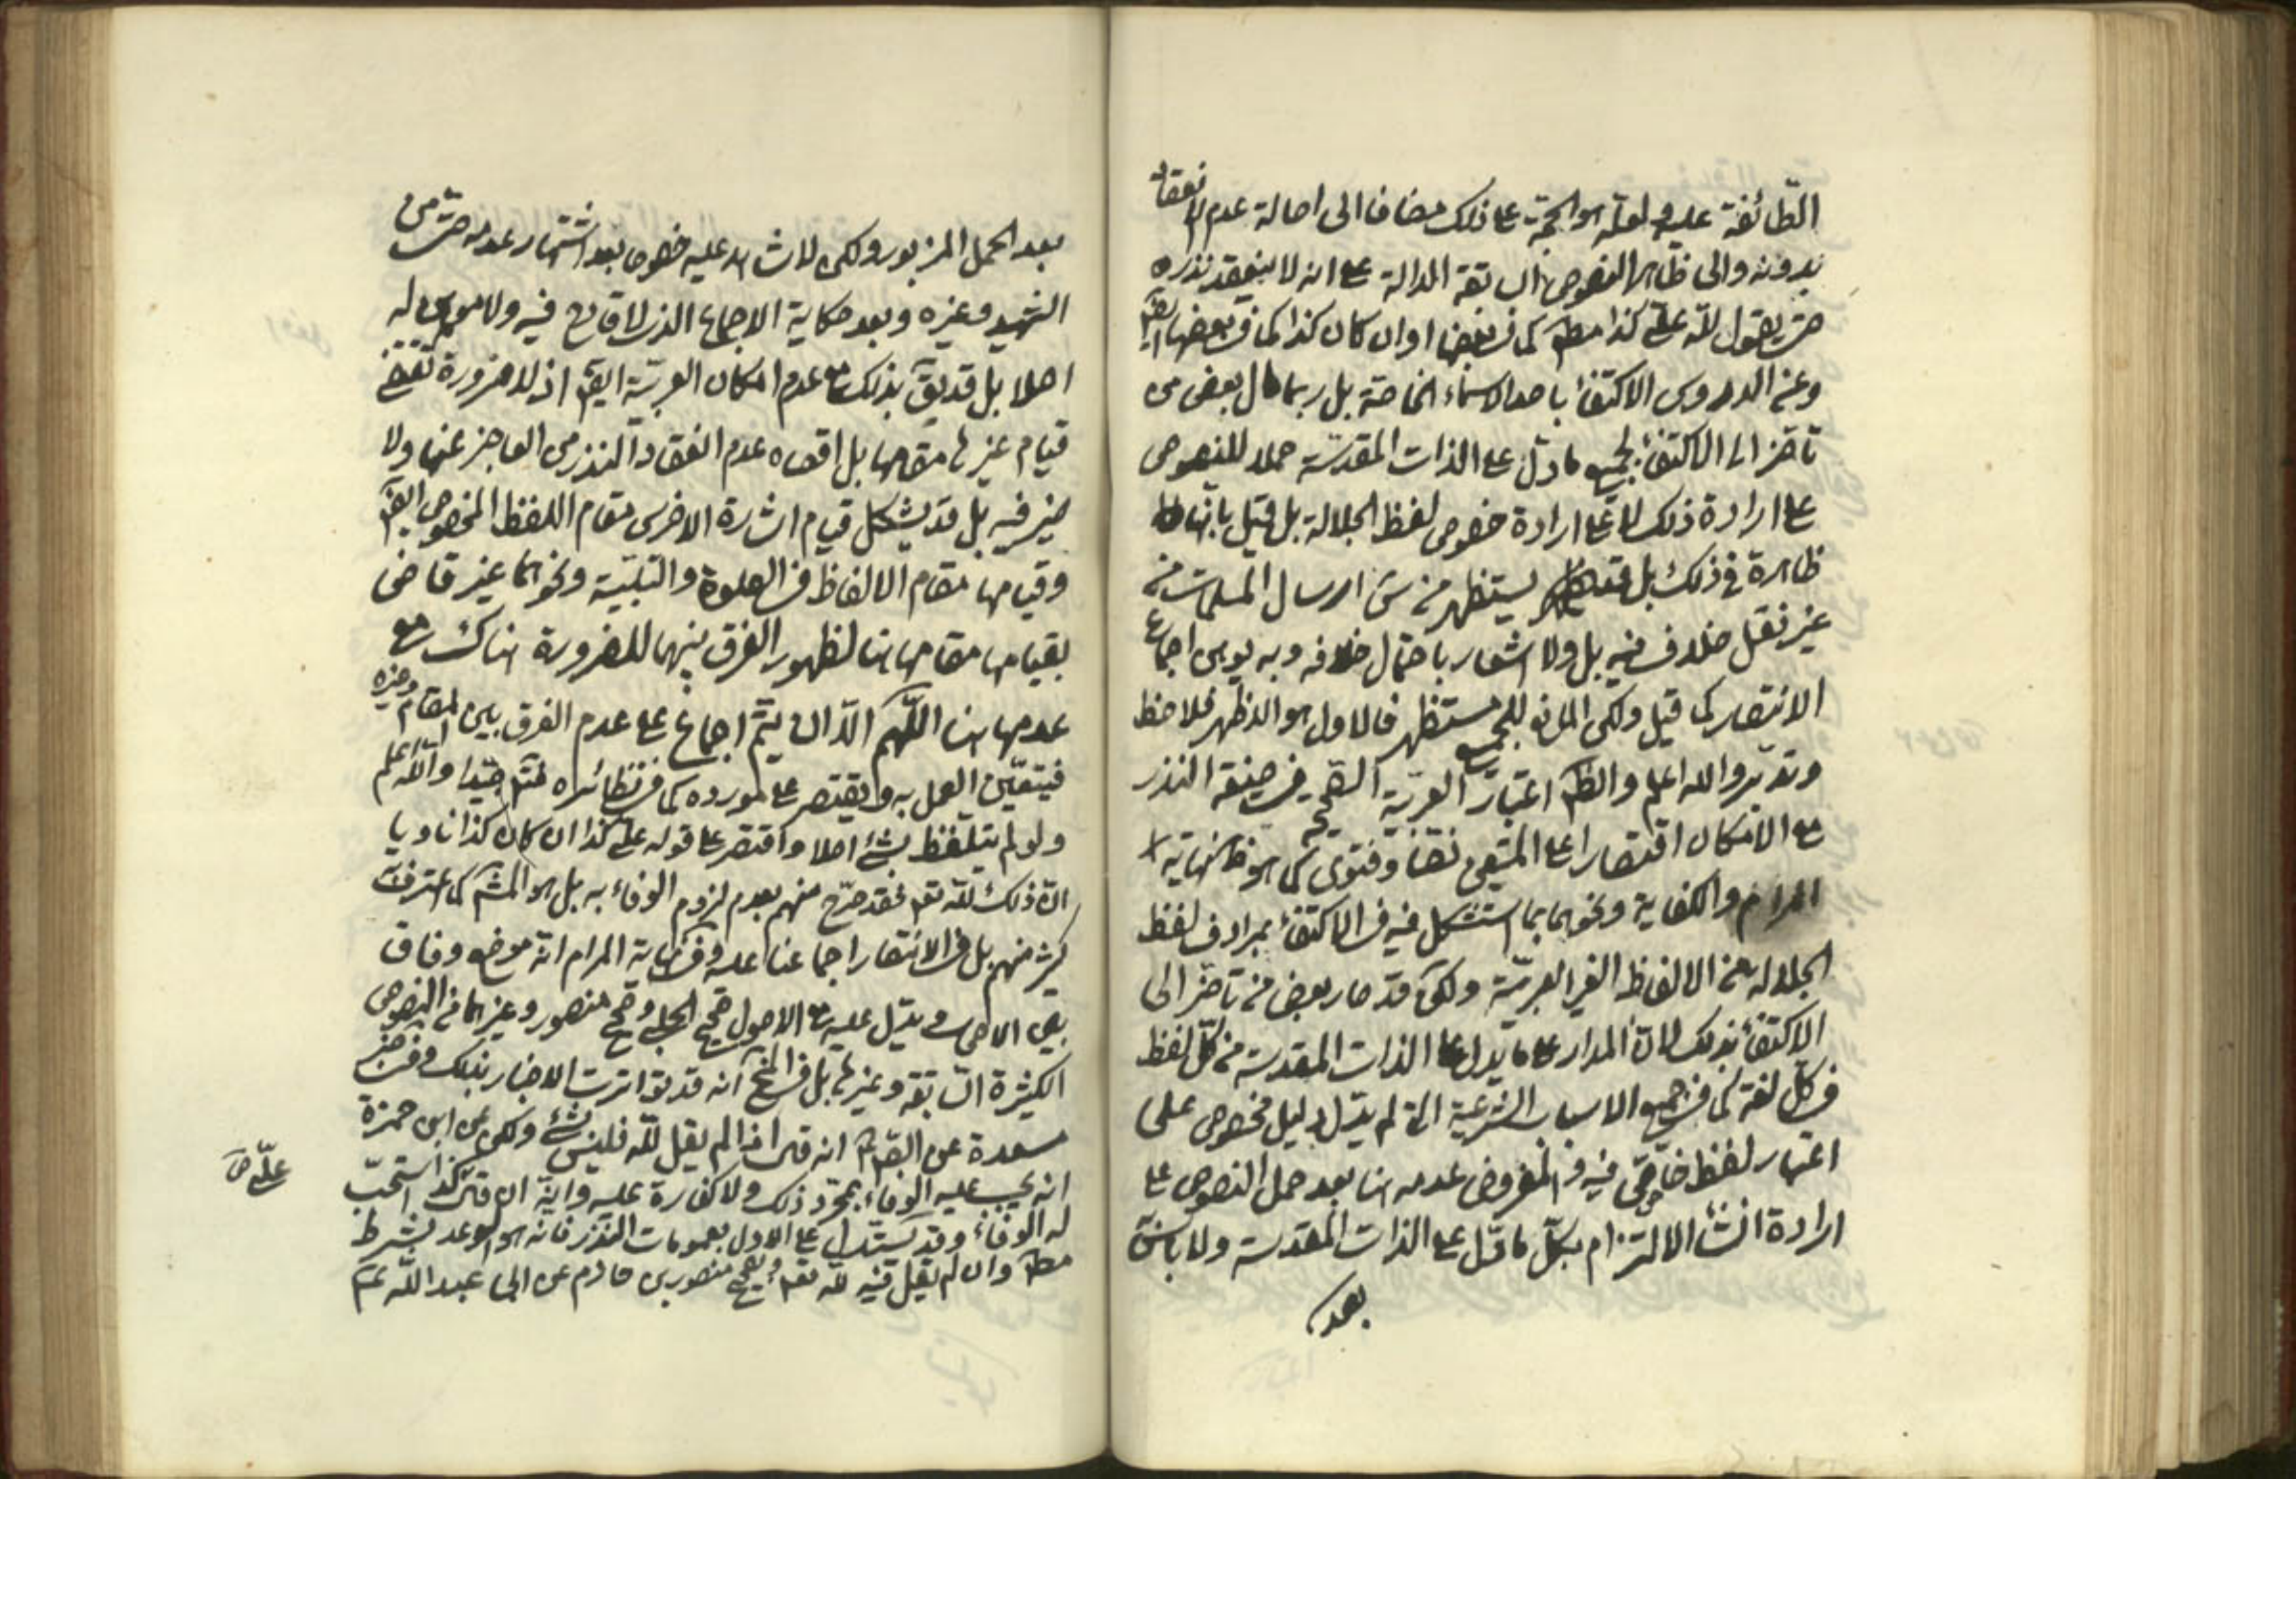 الطائفة عليه ولعله هو الحجة على ذلك مضافا الى اصالة عدم الانعقاد
بدونه والى ظاهر النصوص السابقة الدالة على انه لا ينعقد نذره
حتى يقول لله علي كذا مطم كما في بعضها او ان كان كذا كما في بعضها ايضم
وعن الدروس الاكتفاء باحد الاسماء الخاصة بل ربما مال بعض من
تاخر الى الاكتفاء بجميع ما دل على الذات المقدسة حملا للنصوص
على ارادة ذلك لا على ارادة خصوص لفظ الجلالة بل قيل بانها
ظاهرة في ذلك بل يستظهر من ارسال المسلمات من
غير نقل خلاف فيه بل ولا اشعار باحتمال خلافه وبه يوهن اجماع
الانتصار كما قيل ولكن المانع للجميع مستظهر فالاول هو الاظهر فلاحظ
وتدبر والله اعلم والظم اعتبار العربية الصحيحة في صيغة النذر
مع الامكان اقتصارا على المتيقن نصا وفتوى كما هو ظ نهاية
المرام والكفاية ونحوهما بما استشكل فيه في الاكتفاء بمرادف لفظ
الجلالة من الالفاظ الغير العربية ولكن قد صار بعض من تاخر الى
الاكتفاء بذلك لان المدار على ما يدل على الذات المقدسة من كل لفظ
في كل لغة كما في جميع الاسباب الشرعية التي لم يدل دليل مخصوص على
اعتبار لفظ خاص فيه والمفروض عدمه هنا بعد حمل النصوص على
ارادة انشاء الالتزام بكل ما دل على الذات المقدسة ولا باس
بعد
بعد الحمل المزبور ولكن لا شاهد عليه خصوصا بعد اشتهار عدمه حتى من
الشهيد وغيره وبعد حكاية الاجماع الذي لا قادح فيه ولا موهن له
اصلا بل قد يق بذلك مع عدم امكان العربية ايضم اذ لا ضرورة تقضي
قيام غيرها مقامها بل اقصاه عدم انعقاد النذر من العاجز عنها ولا
ضير فيه بل قد يشكل قيام اشارة الاخرس مقام اللفظ المخصوص ايضم
وقيامها مقام الالفاظ في الصلوة والتلبية ونحوهما غير قاض
بقيامها مقامها هنا لظهور الفرق بينهما للضرورة هناك مع
عدمها هنا اللهم الا ان يتم اجماع على عدم الفرق بين المقام وغيره
فيتعين العمل به ويقتصر على مورده كما في نظائره فتم جيدا والله اعلم
ولو لم يتلفظ بشئ اصلا واقتصر على قوله علي كذا ان كان كذا ناويا
ان ذلك لله تعم فقد صرح منهم بعدم لزوم الوفاء به بل هو المشم كما اعترف به
كثير منهم بل في الانتصار اجماعنا عليه وفي نهاية المرام انه موضع وفاق
بين الاصحاب ويدل عليه مع الاصول صحيح الحلبي وصحيح منصور وغيرهما من النصوص
الكثيرة السابقة وغيرها بل في انه قد تواترت الاخبار بذلك وفي خبر
مسعدة عن الصم انه قال اذا لم يقل لله فليس بشئ ولكن عن ابن حمزة
انه يجب عليه الوفاء بمجرد ذلك ولا كفارة عليه وانه ان قال كذا استحب
علي ص
له الوفاء وقد يستدل على الاول بعمومات النذر فانه هو الوعد بشرط
مطم وان لم يقل فيه لله تعم وبصحيح منصور بن حازم عن ابي عبد الله عم